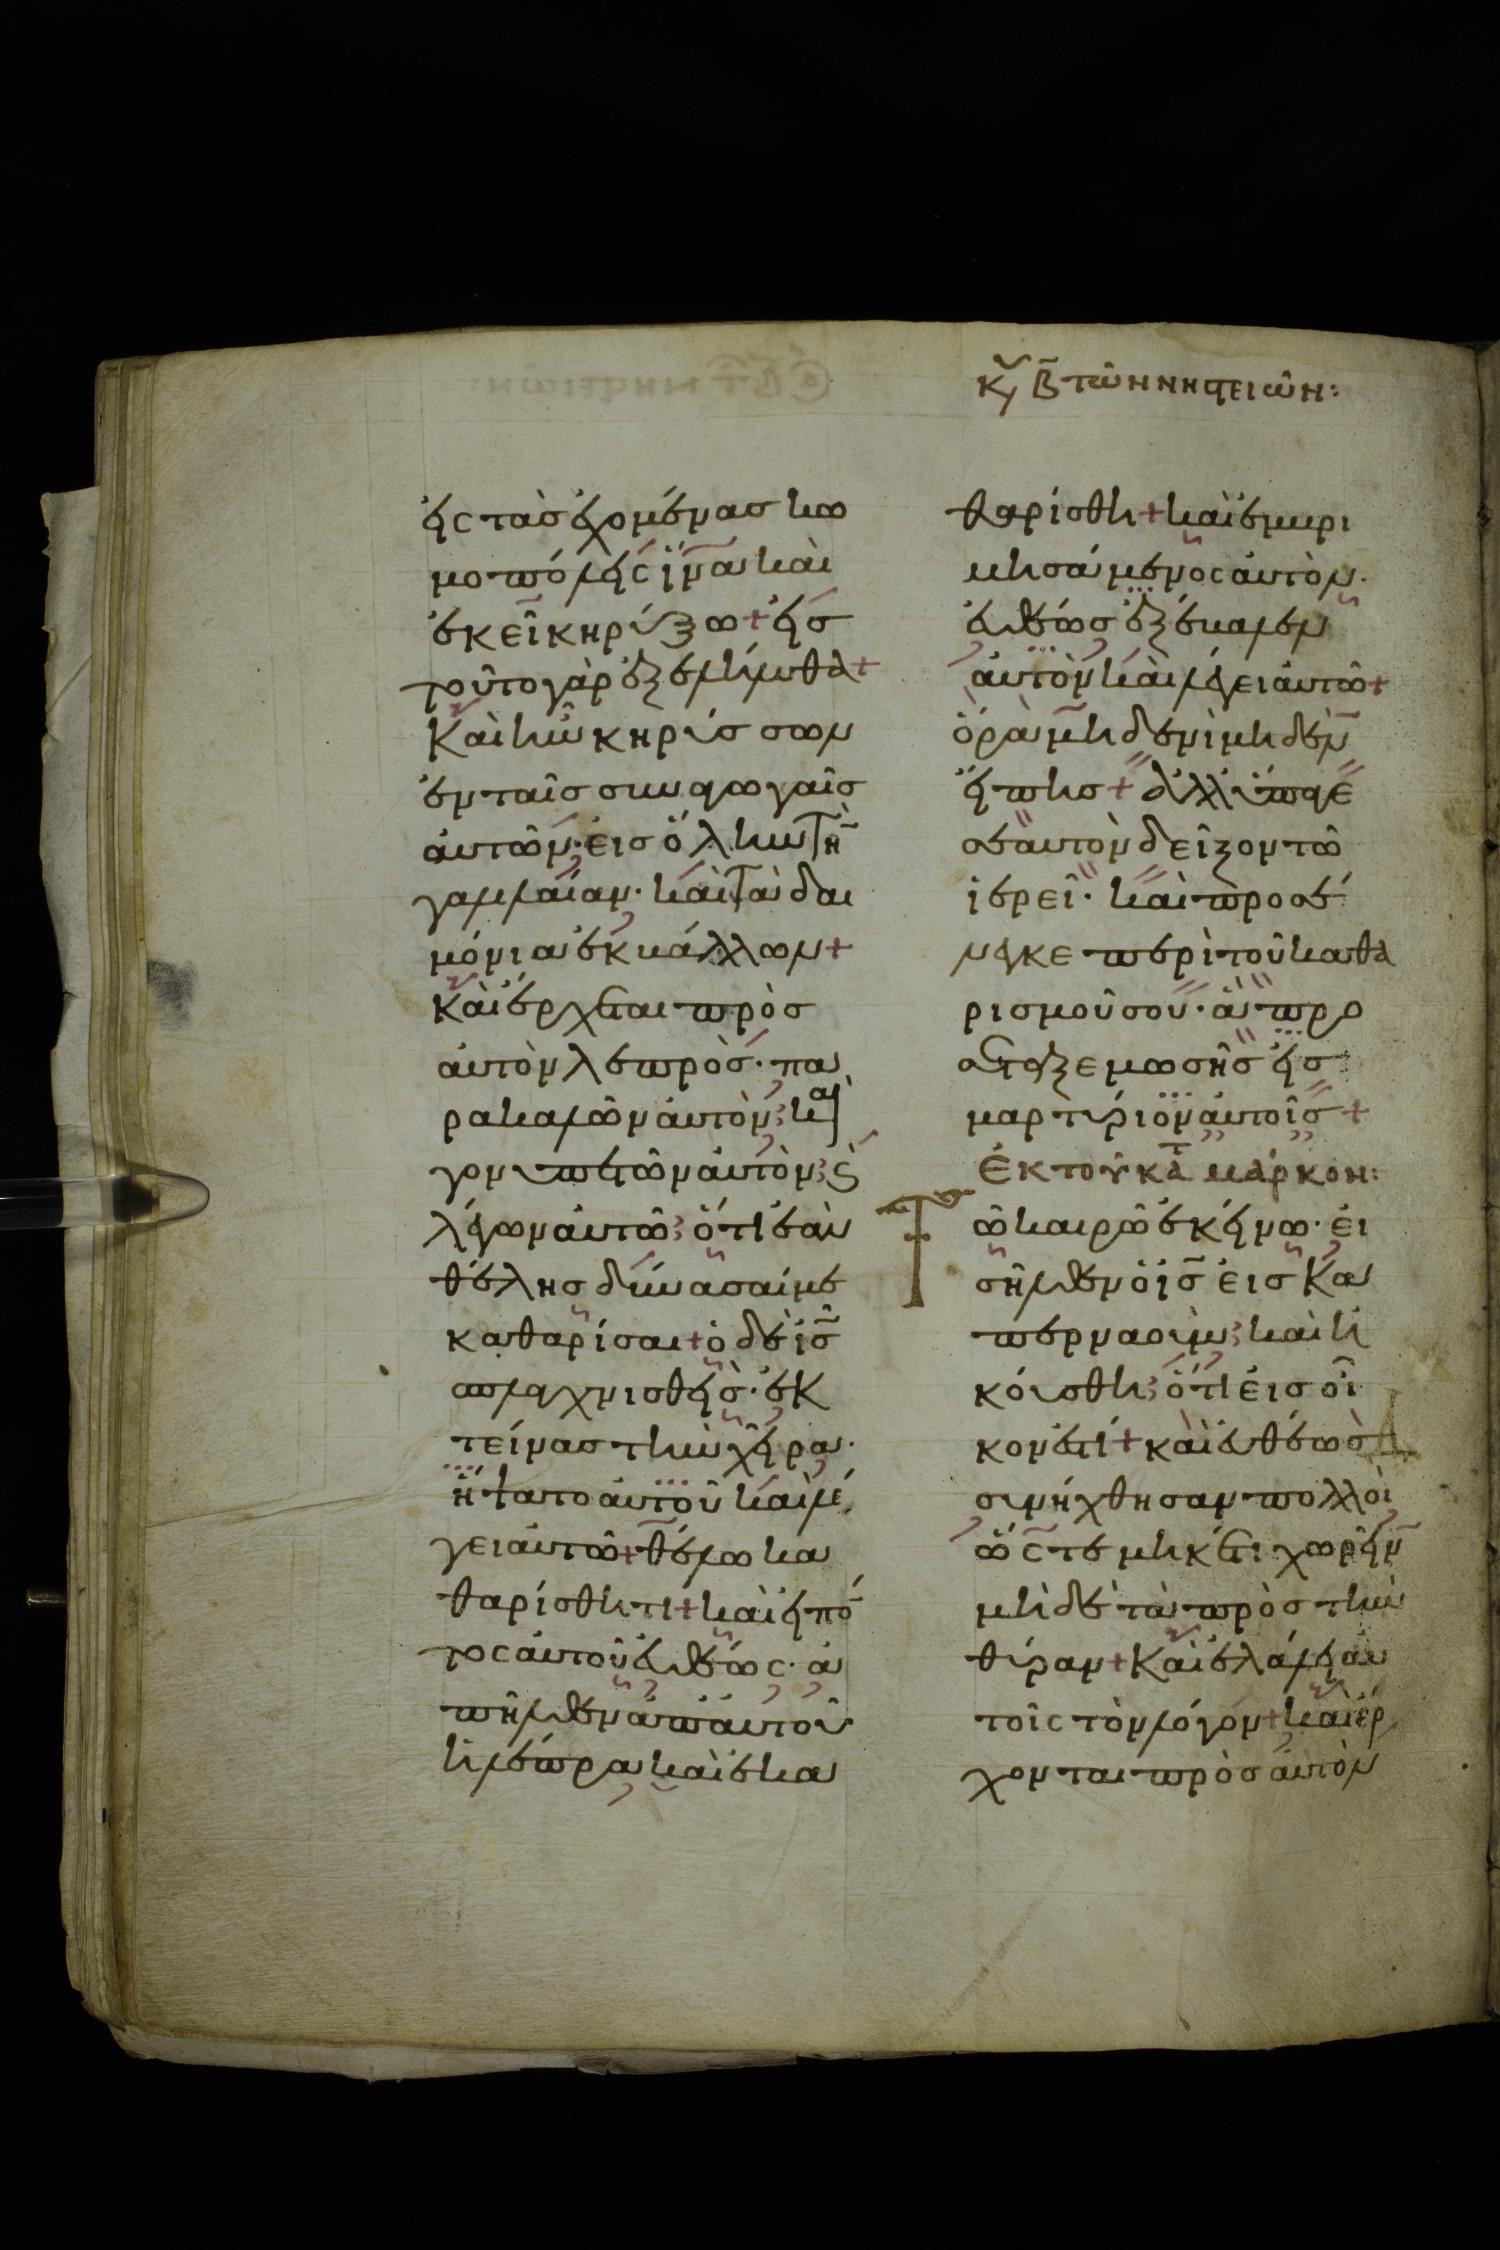 Κυ Β τῶν νηστειῶν:
εἰς τὰσ ἐχομένας κω
μοπόλεις ἵνα καὶ
ἐκεῖ κηρύξω + εἰσ
τοῦτο γὰρ ἐξελήλυθα +
Καὶ ἦν κηρύσσων
ἐν ταῖσ συναγωγαῖσ
αὐτῶν· εἰσ ὅλην τὴ
γαλιλαίαν· καὶ τὰ δαι
μόνια ἐκβάλλων +
Καὶ ἔρχεται πρὸσ
αὐτὸν λεπρὸσ· πα
ρακαλῶν αὐτὸν· καὶ
γονυπετῶν αὐτὸν· ϗ
λέγων αὐτῶ· ὅτι ἐὰν
θέλησ δύνασαί με
καθαρίσαι + ὁ δὲ ἰσ
σπλαγχνισθεὶσ· ἐκ
τείνασ τὴν χεῖρα·
ἥψατο αὐτοῦ καὶ λέ
γει αὐτῶ + θέλω κα
θαρίσθητι + καὶ εἰπό
τος αὐτοῦ εὐθέως· ἀ
πῆλθεν ἀπ αὐτοῦ
ἡ λέπρα καὶ ἐκα
θαρίσθη + καὶ ἐμβρι
μησάμενος αὐτὸν·
εὐθέωσ ἐξέβαλεν
αὐτὸν καὶ λέγει αὐτῶ +
ὅρα μηδενὶ μηδὲν
εἴπησ + ἀλλ ὕπαγε
σεαυτὸν δεῖξον τῶ
ἱερεῖ· καὶ προσέ
νεγκε περὶ τοῦ καθα
ρισμοῦ σου· ἃ προ
σέταξε μωσῆσ εἰσ
μαρτύριον αὐτοῖσ +
Ἐκ τοῦ κατ μάρκον:
Τῶ καιρῶ ἐκείνω· εἰ
σῆλθεν ὁ ἰσ εἰσ Κα
περναούμ· καὶ ἠ
κούσθη· ὅτι εἰσ οἶ
κον ἐστί + καὶ εὐθέωσ
συνήχθησαν πολλοὶ
ὥςτε μηκέτι χωρεῖν
μηδὲ τὰ πρὸσ τὴν
θύραν + Καὶ ἐλάλει αὐ
τοῖς τὸν λόγον + καὶ ἔρ
χονται πρὸσ αὐτὸν